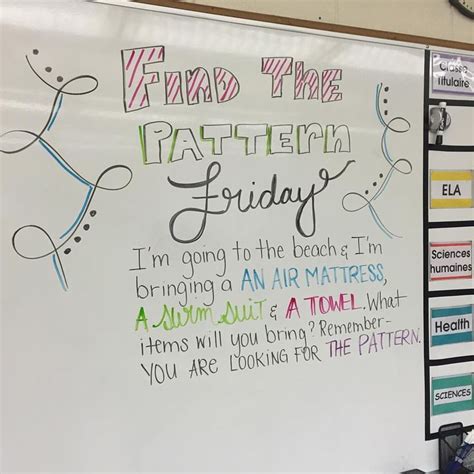 FIND THE
PATTERN
Friday
I'm going to the beach & I'm
bringing a AN AIR MATTRESS,
A SWIM SUIT & A TOWEL. What
items will you bring? Remember-
YOU ARE LOOKING FOR THE PATTERN.
Classe
Titulaire
ELA
Sciences
humaines
Health
SCIENCES